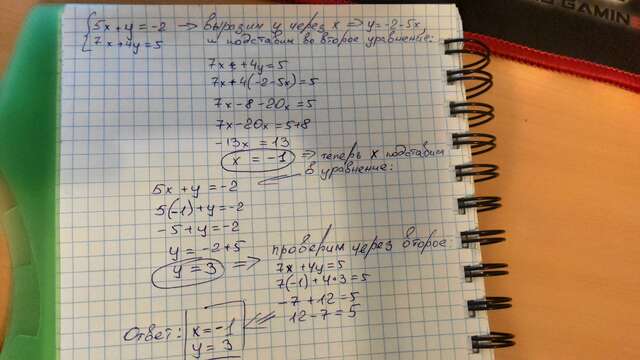 {5x + y = -2 → выразим y через x ⇒ y = -2 - 5x
{7x + 4y = 5 и подставим во второе уравнение:
7x + 4y = 5
7x + 4(-2 - 5x) = 5
7x - 8 - 20x = 5
7x - 20x = 5 + 8
-13x = 13
x = -1 ⇒ теперь x подставим
в уравнение:
5x + y = -2
5(-1) + y = -2
-5 + y = -2
y = -2 + 5
y = 3 ⇒ проверим через второе:
7x + 4y = 5
7(-1) + 4·3 = 5
-7 + 12 = 5
12 - 7 = 5
Ответ: x = -1
y = 3
GAMING